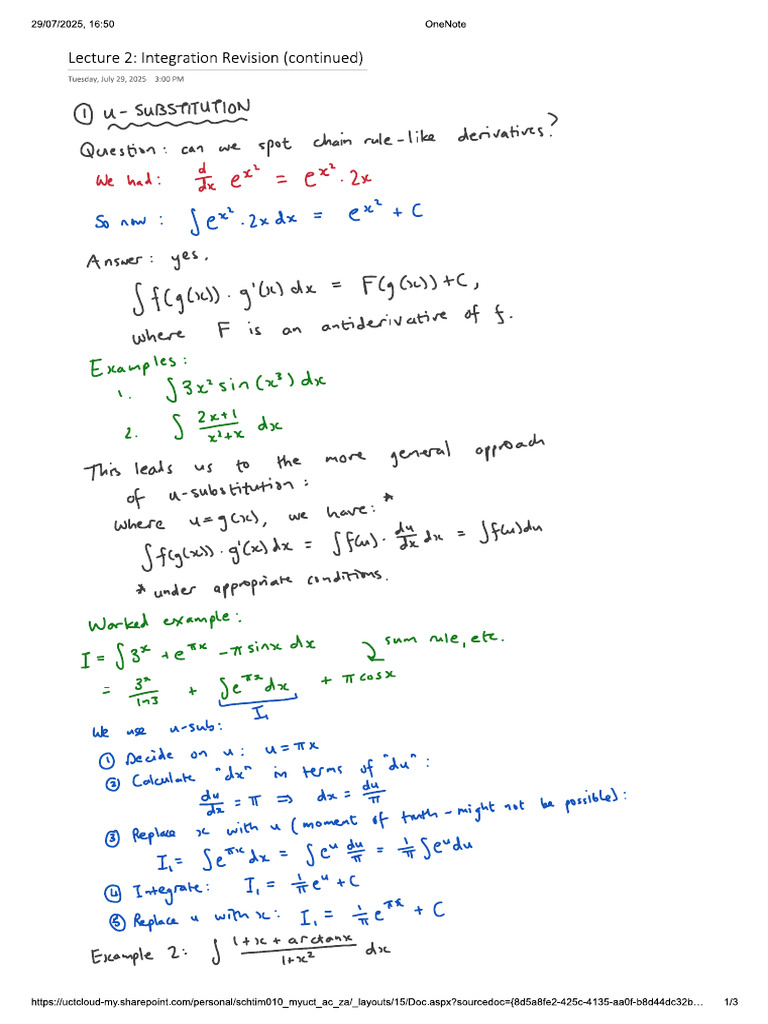 29/07/2025, 16:50 OneNote
Lecture 2: Integration Revision (continued)
Tuesday, July 29, 2025 3:00 PM
① u-SUBSTITUTION
Question: can we spot chain rule-like derivatives?
We had: d/dx e^(x²) = e^(x²) · 2x
So now: ∫e^(x²) · 2x dx = e^(x²) + C
Answer: yes.
∫f(g(x)) · g'(x) dx = F(g(x)) + C,
where F is an antiderivative of f.
Examples:
1. ∫3x² sin(x³) dx
2. ∫ (2x+1)/(x²+x) dx
This leads us to the more general approach
of u-substitution:
where u=g(x), we have: *
∫f(g(x)) · g'(x) dx = ∫f(u) · du/dx dx = ∫f(u)du
* under appropriate conditions.
Worked example:
I = ∫3^x + e^(πx) - π sinx dx ↓ sum rule, etc.
= 3^x/ln3 + ∫e^(πx) dx + π cosx
I₁
We use u-sub:
① Decide on u: u = πx
② Calculate "dx" in terms of "du":
du/dx = π ⇒ dx = du/π
③ Replace x with u (moment of truth - might not be possible):
I₁ = ∫e^(πx) dx = ∫e^u du/π = 1/π ∫e^u du
④ Integrate: I₁ = 1/π e^u + C
⑤ Replace u with x: I₁ = 1/π e^(πx) + C
Example 2: ∫ (1+x+arctanx)/(1+x²) dx
https://uctcloud-my.sharepoint.com/personal/schtim010_myuct_ac_za/_layouts/15/Doc.aspx?sourcedoc={8d5a8fe2-425c-4135-aa0f-b8d44dc32b… 1/3